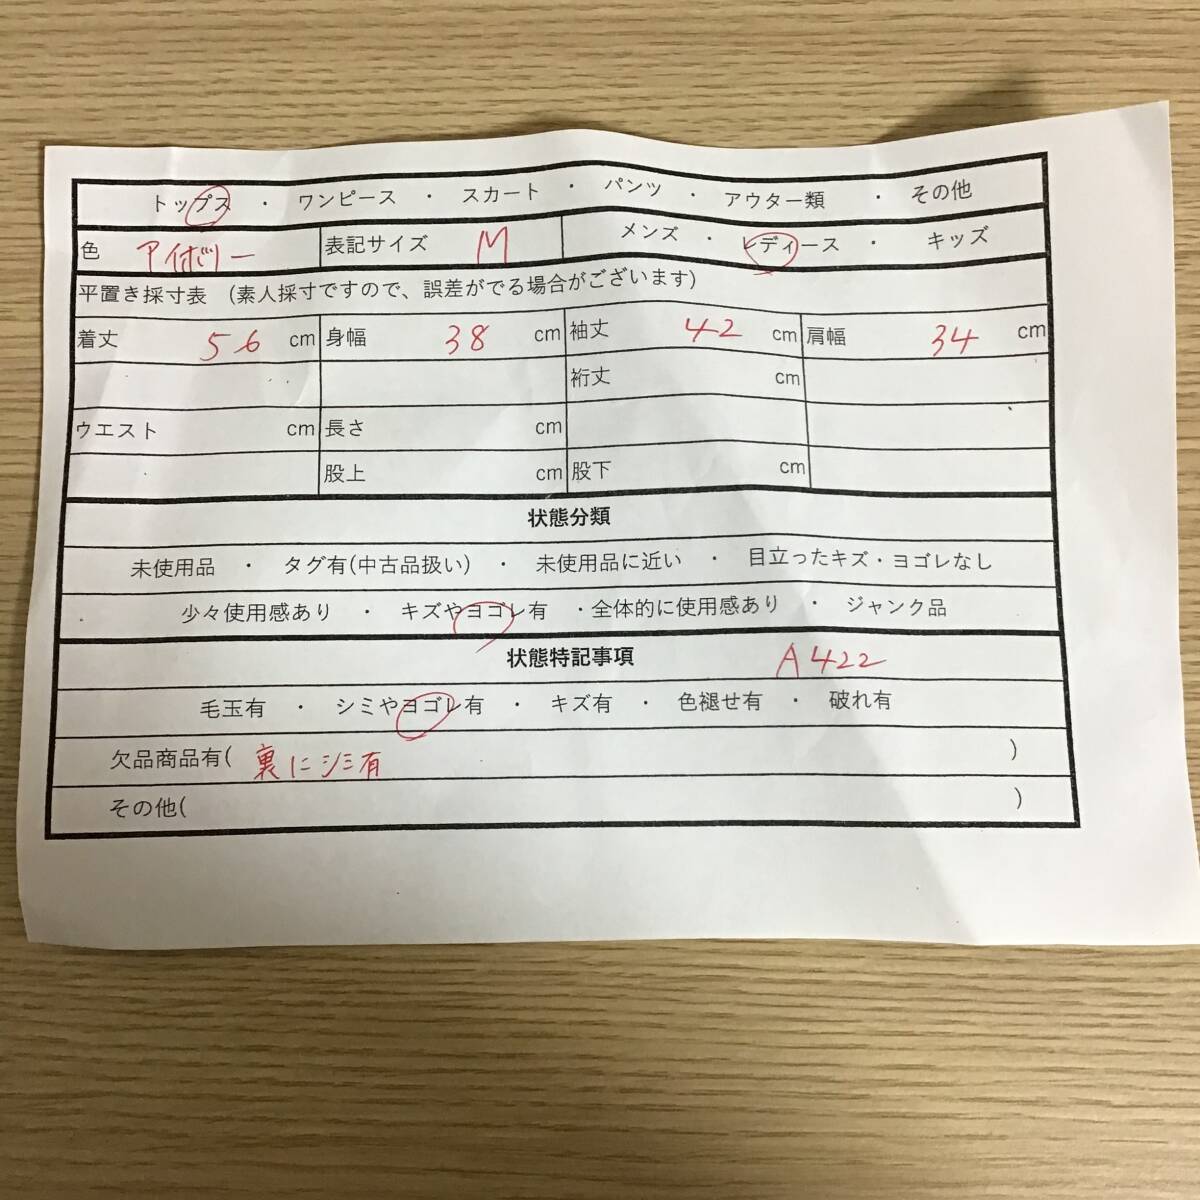 トップス ・ ワンピース ・ スカート ・ パンツ ・ アウター類 ・ その他
色 アイボリー 表記サイズ M メンズ ・ レディース ・ キッズ
平置き採寸表 (素人採寸ですので、誤差がでる場合がございます)
着丈 56 cm 身幅 38 cm 袖丈 42 cm 肩幅 34 cm
裄丈 cm
ウエスト cm 長さ cm
股上 cm 股下 cm
状態分類
未使用品 ・ タグ有(中古品扱い) ・ 未使用品に近い ・ 目立ったキズ・ヨゴレなし
少々使用感あり ・ キズやヨゴレ有 ・全体的に使用感あり ・ ジャンク品
状態特記事項 A422
毛玉有 ・ シミやヨゴレ有 ・ キズ有 ・ 色褪せ有 ・ 破れ有
欠品商品有( 裏にシミ有 )
その他( )